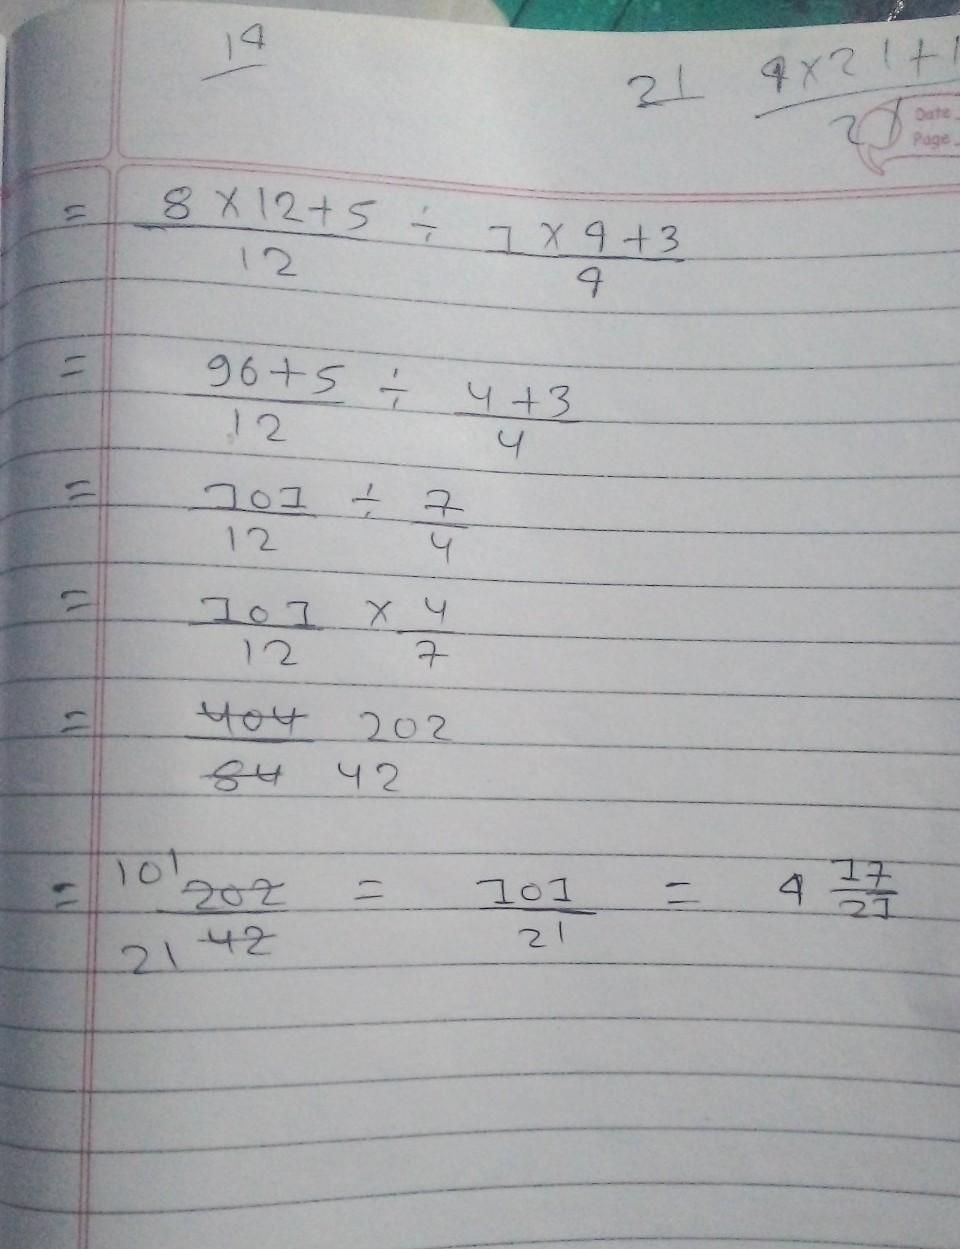 14
21 4×21+1/21
Date
Page
= 8×12+5/12 ÷ 1×4+3/4
= 96+5/12 ÷ 4+3/4
= 101/12 ÷ 7/4
= 101/12 × 4/7
= 404/84 202/42
= 101 202/21 42 = 101/21 = 4 17/21